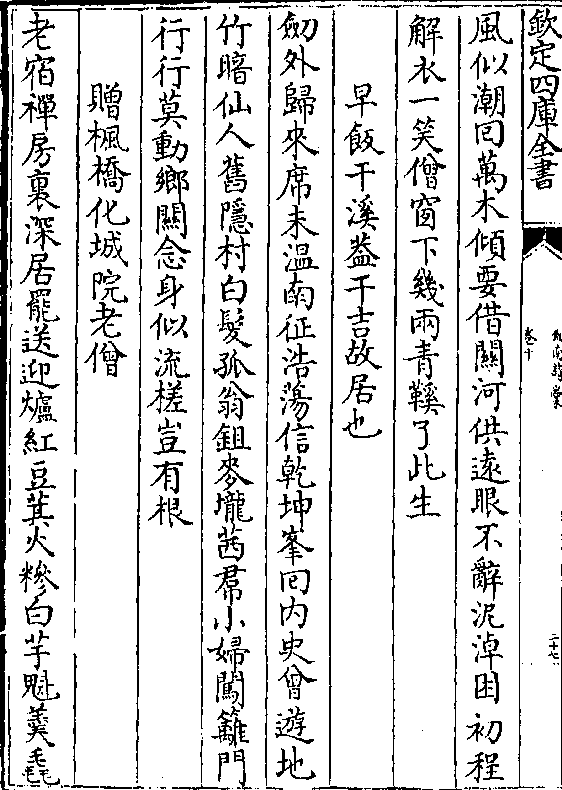 欽定四庫全書
劒南詩稾
卷十
二十七
風似潮囘萬木傾要借關河供逺眼不辭泥淖困初程
解衣一笑僧窗下幾兩青鞵了此生
早飯干溪葢干吉故居也
劒外歸來席未温南征浩蕩信乾坤峯囘内史曾遊地
竹暗仙人舊隱村白髮孤翁鉏麥壠茜帬小婦闖籬門
行行莫動鄉關念身似流槎豈有根
贈楓橋化城院老僧
老宿禪房裏深居罷送迎爐紅豆萁火糝白芋魁羮毳